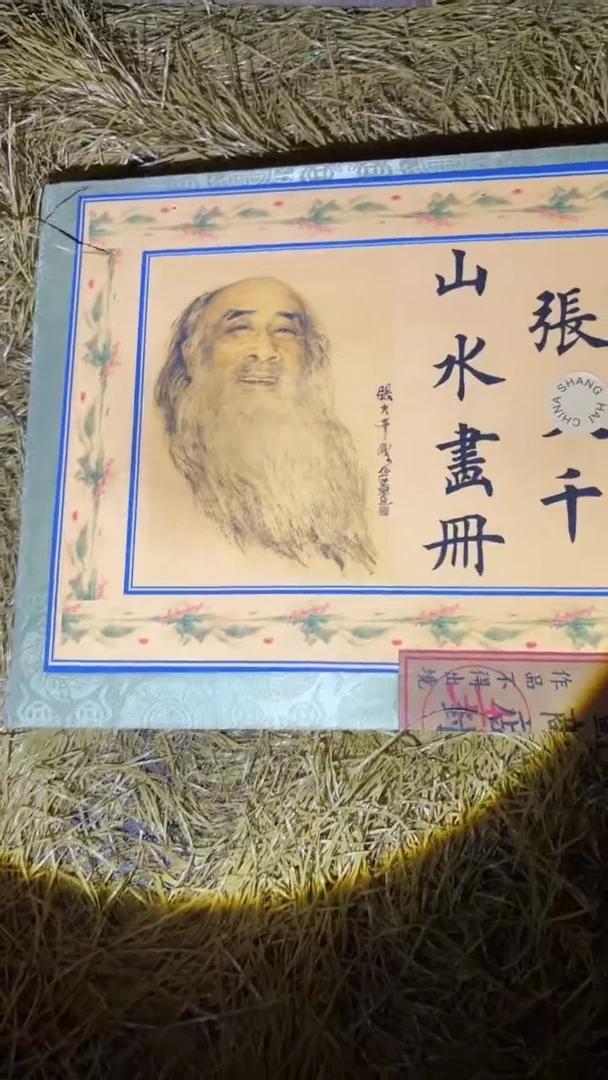 張 千
山水畫冊
張大千
SHANG HAI CHINA
作品不得出境
店封